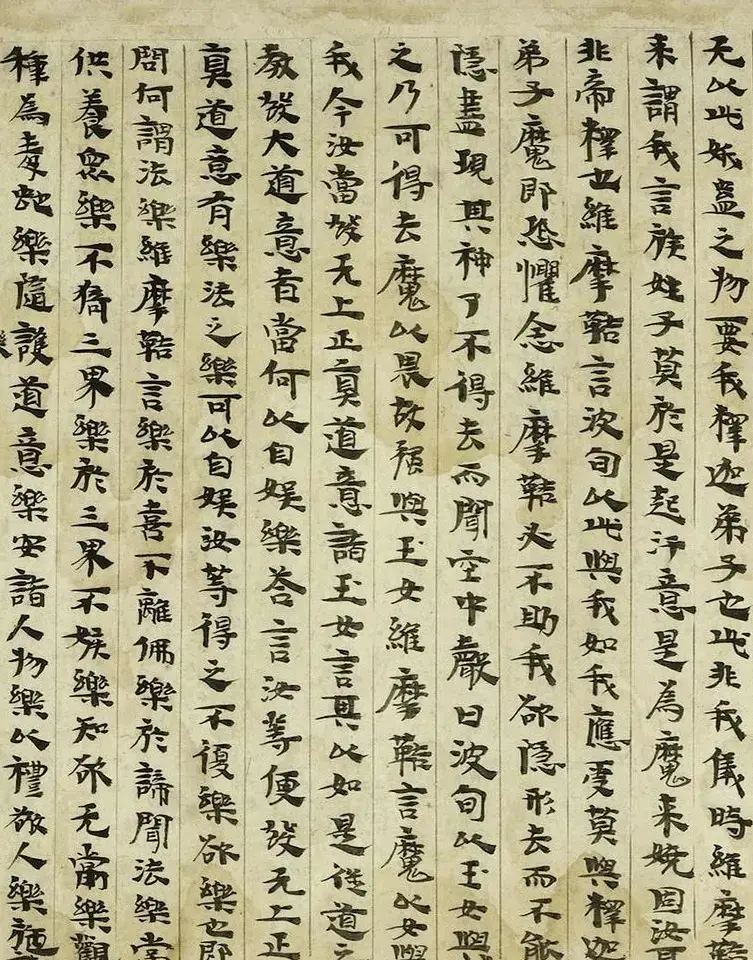 无以此妖蠱之物要我釋迦弟子也此非我儀時維摩詰
来謂我言族姓子莫於是起汙意是為魔来嬈固汝耳
非帝釋也維摩詰言波旬以此與我如我應受莫與釋迦
弟子魔即恐懼念維摩詰必不助我欲隱形去而不能
隱盡現其神了不得去而聞空中聲曰波旬以玉女與
之乃可得去魔以畏故强與玉女維摩詰言魔以女與
我今汝當發无上正真道意諸玉女言其以如是從道之
教發大道意者當何以自娛樂答言汝等便發无上正
真道意有樂法之樂可以自娛汝等得之不復樂欲樂也即
問何謂法樂維摩詰言樂於喜不離佛樂於諦聞法樂常
供養眾樂不猗三界樂於三界不嫉樂知欲无常樂觀
種為毒蛇樂隨護道意樂安諸人物樂以禮敬人樂施